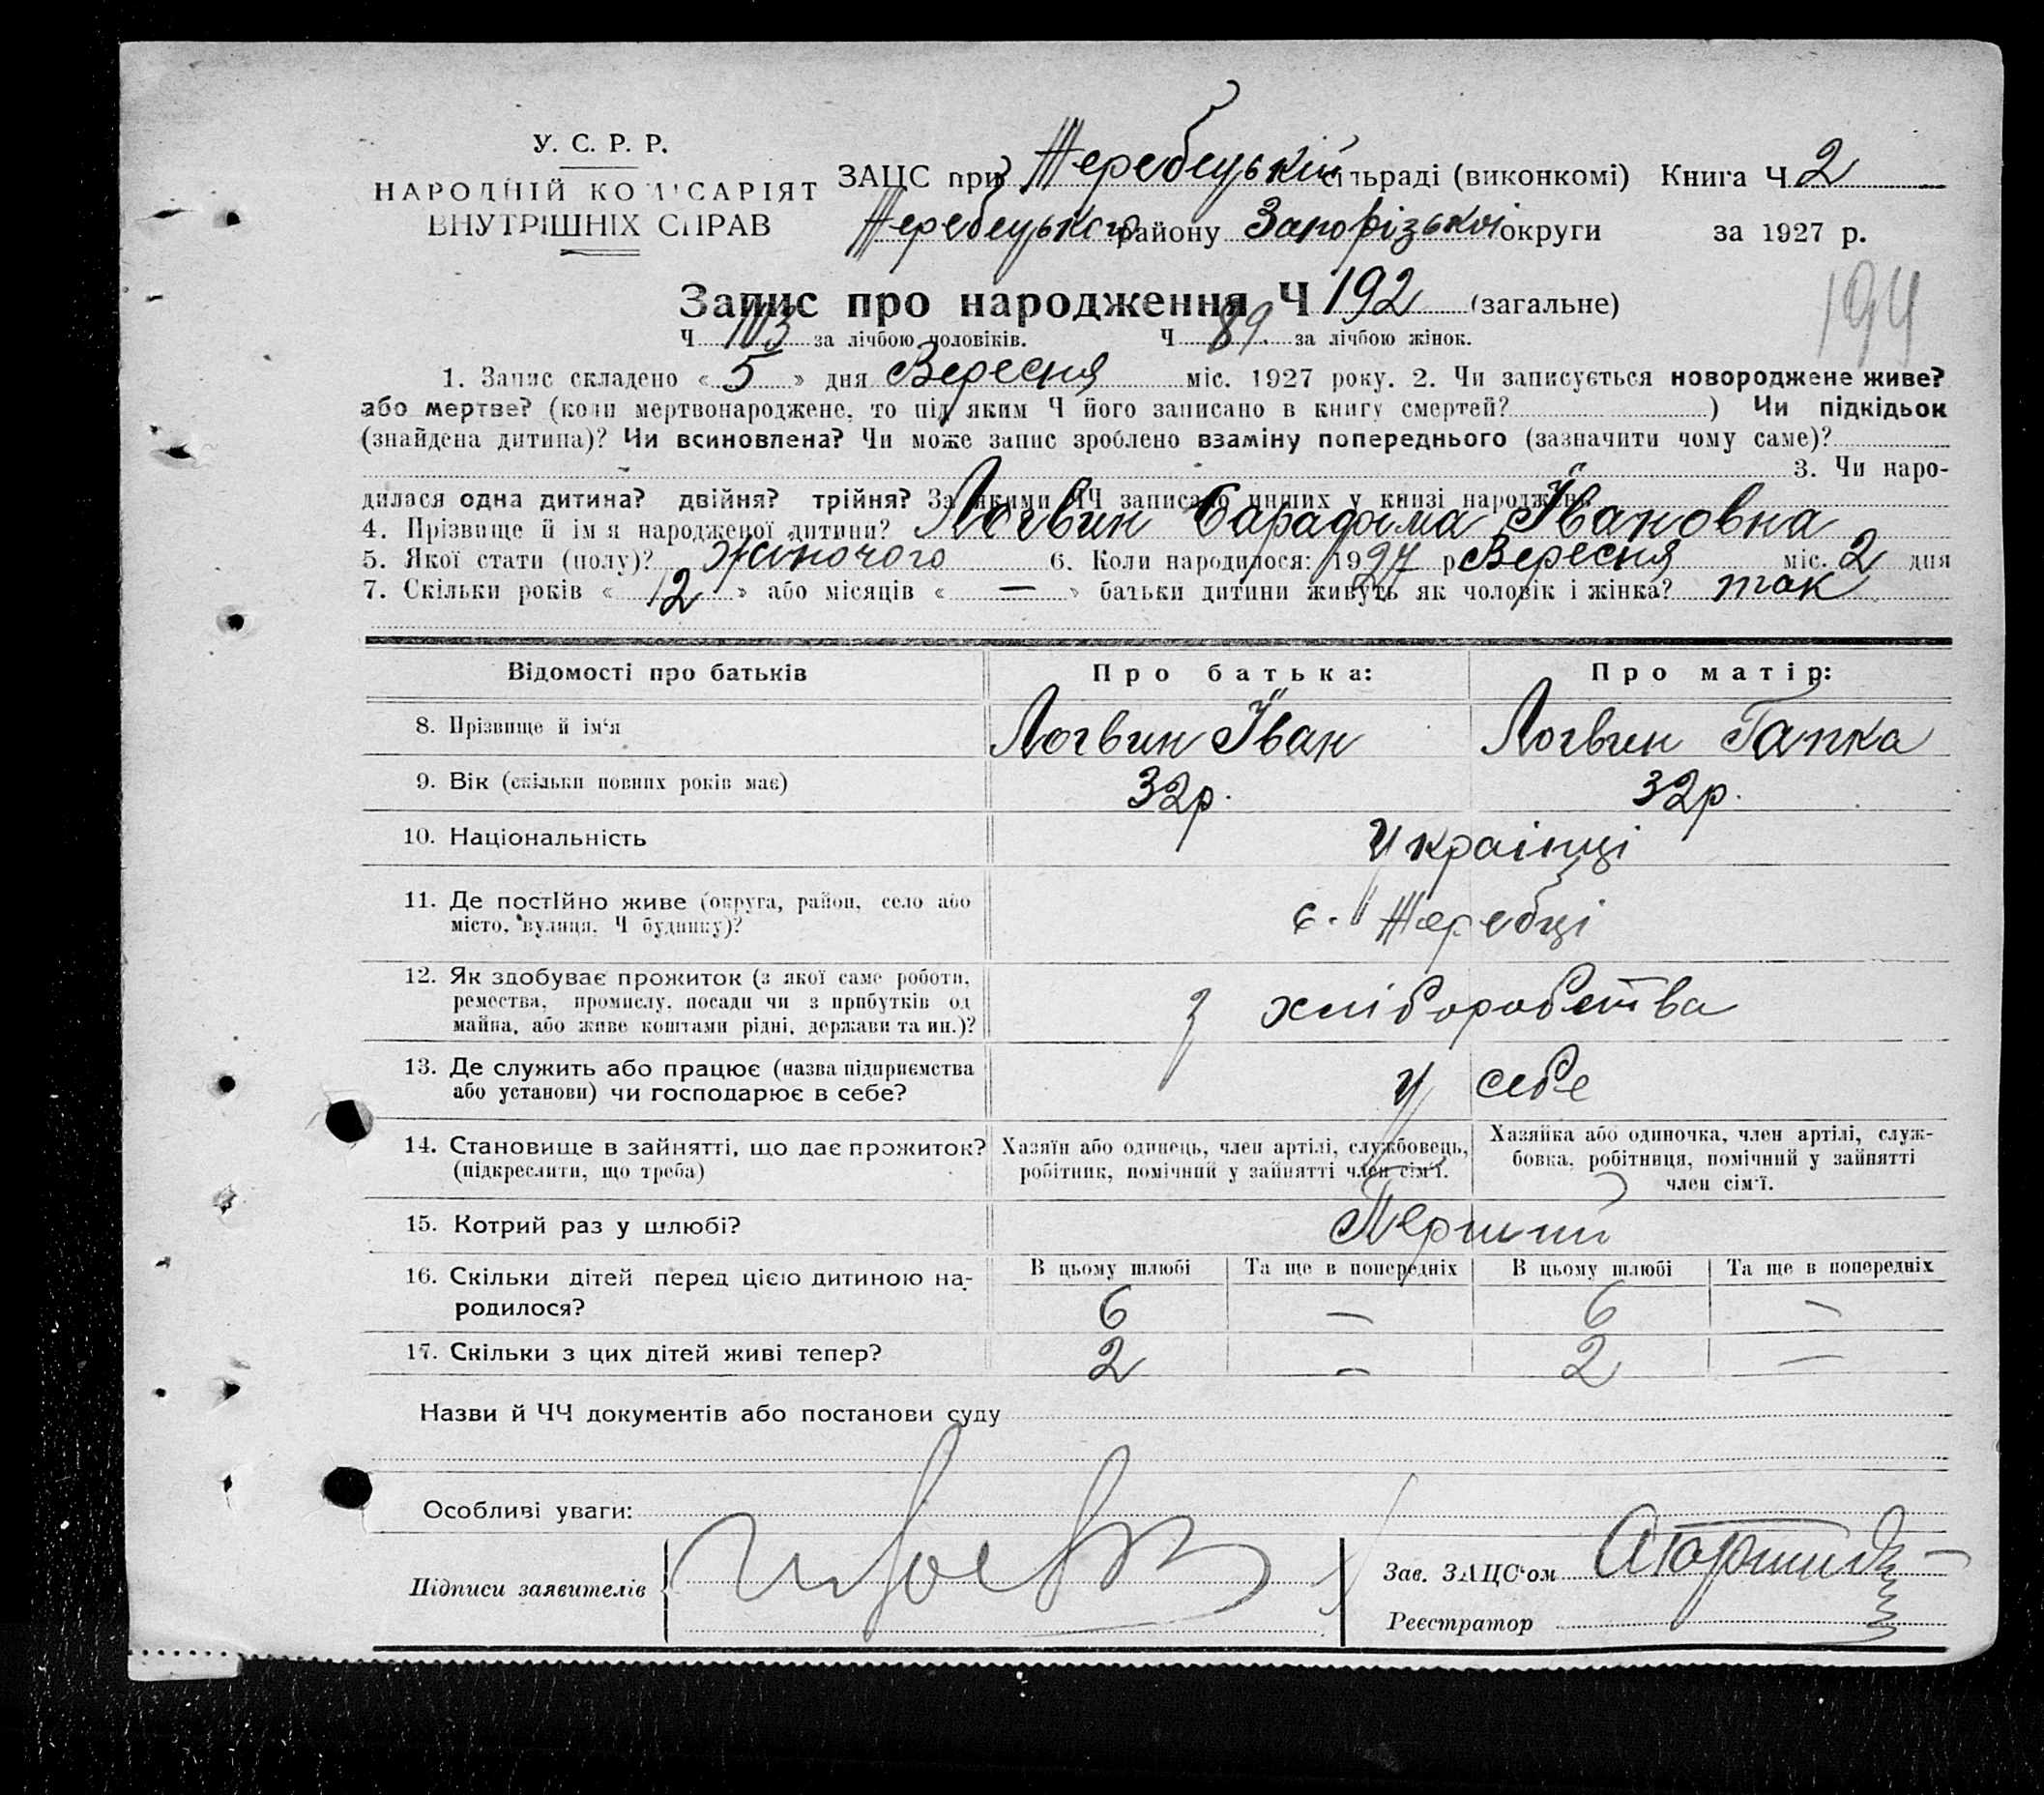 У. С. Р. Р.
НАРОДНІЙ КОМІСАРІЯТ
ВНУТРІШНІХ СПРАВ
ЗАЦС при Жеребецькій сільраді (виконкомі) Книга Ч 2
Жеребецького району Запорізької округи за 1927 р.
194
Запис про народження Ч 192 (загальне)
Ч 103 за лічбою чоловіків. Ч 89 за лічбою жінок.
1. Запис складено « 5 » дня Вересня міс. 1927 року. 2. Чи записується новороджене живе?
або мертве? (коли мертвонароджене, то під яким Ч його записано в книгу смертей? ) Чи підкідьок
(знайдена дитина)? Чи всиновлена? Чи може запис зроблено взаміну попереднього (зазначити чому саме)?
3. Чи наро-
дилася одна дитина? двійня? трійня? За якими ЧЧ записано инших у книзі народжень
4. Прізвище й ім я народженої дитини? Логвин Івановна
5. Якої стати (полу)? жіночого 6. Коли народилося: 1927 р Вересня міс. 2 дня
7. Скільки років « 12 » або місяців « — » батьки дитини живуть як чоловік і жінка? так
Відомості про батьків Про батька: Про матір:
8. Прізвище й ім'я Логвин Іван Логвин Гапка
9. Вік (скільки повних років має) 32 р. 32 р.
10. Національність Українці
11. Де постійно живе (округа, район, село або
місто, вулиця, Ч будинку)? с. Жеребці
12. Як здобуває прожиток (з якої саме роботи,
ремества, промислу, посади чи з прибутків од
майна, або живе коштами рідні, держави та ин.)? з хліборобства
13. Де служить або працює (назва підприємства
або установи) чи господарює в себе? у себе
14. Становище в зайнятті, що дає прожиток?
(підкреслити, що треба)
Хазяїн або одинець, член артілі, службовець,
робітник, помічний у зайнятті член сім'ї.
Хазяйка або одиночка, член артілі, служ-
бовка, робітниця, помічний у зайнятті
член сім'ї.
15. Котрий раз у шлюбі? Перший
16. Скільки дітей перед цією дитиною на-
родилося?
В цьому шлюбі Та ще в попередніх В цьому шлюбі Та ще в попередніх
6 — 6 —
17. Скільки з цих дітей живі тепер? 2 — 2 —
Назви й ЧЧ документів або постанови суду
Особливі уваги:
Підписи заявителів
Зав. ЗАЦС'ом
Реєстратор